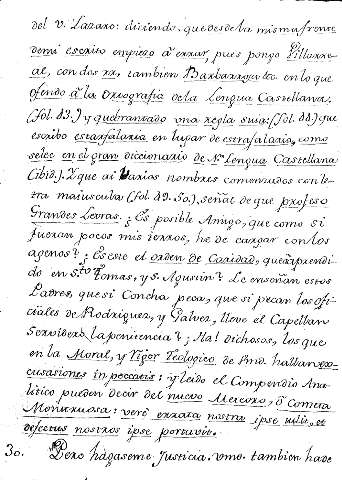 del v. Lazaro: diziendo: que desde la misma frente
de mi escrito empiezo à errar, pues pongo Pillarre-
al, con dos rr, tambien Barbarroxa &c. en lo que
ofendo à la Ortografia de la Lengua Castellana:
(fol. 43.) y quebrantando una regla suia: (fol. 44) que
escribo estarfalaria en lugar de estrafalaria, como
se lee en el gran diccionario de Nra Lengua Castellana
(ibid.). Y que ai varios nombres comenzados con le-
tra maiuscula (fol. 49. 50.), señal de que profeso
Grandes Letras. ¿Es posible Amigo, que como si
fueran pocos mis ierros, he de cargar con los
agenos? ¿Es este el orden de Caridad, que aprendi-
do en Sto Tomas, y S. Agustin? Le enseñan estos
Padres, que si Concha peca, que si pecan los ofi-
ciales de Rodriguez, y Galvez, lleve el Capellan
la penitencia? ¡Ha! dichosos, los que
en la Moral, y Rigor Teologico de Vmd. hallan ex-
cusationes in peccatis: y leido el Compendio Ana-
litico pueden decir del nuevo Meteoro, ô Cometa
Monstruosa: verè errata nostra ipse tulit, et
defectus nostros ipse portavit.
30. Pero hagaseme justicia. Vmd. tambien have